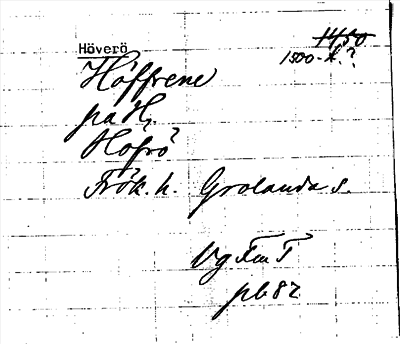 Höverö
1450
1500-t.?
Höffrene
på H.
Höfrö
Frök. h. Grolanda s.
Vg Fm I
pb 82